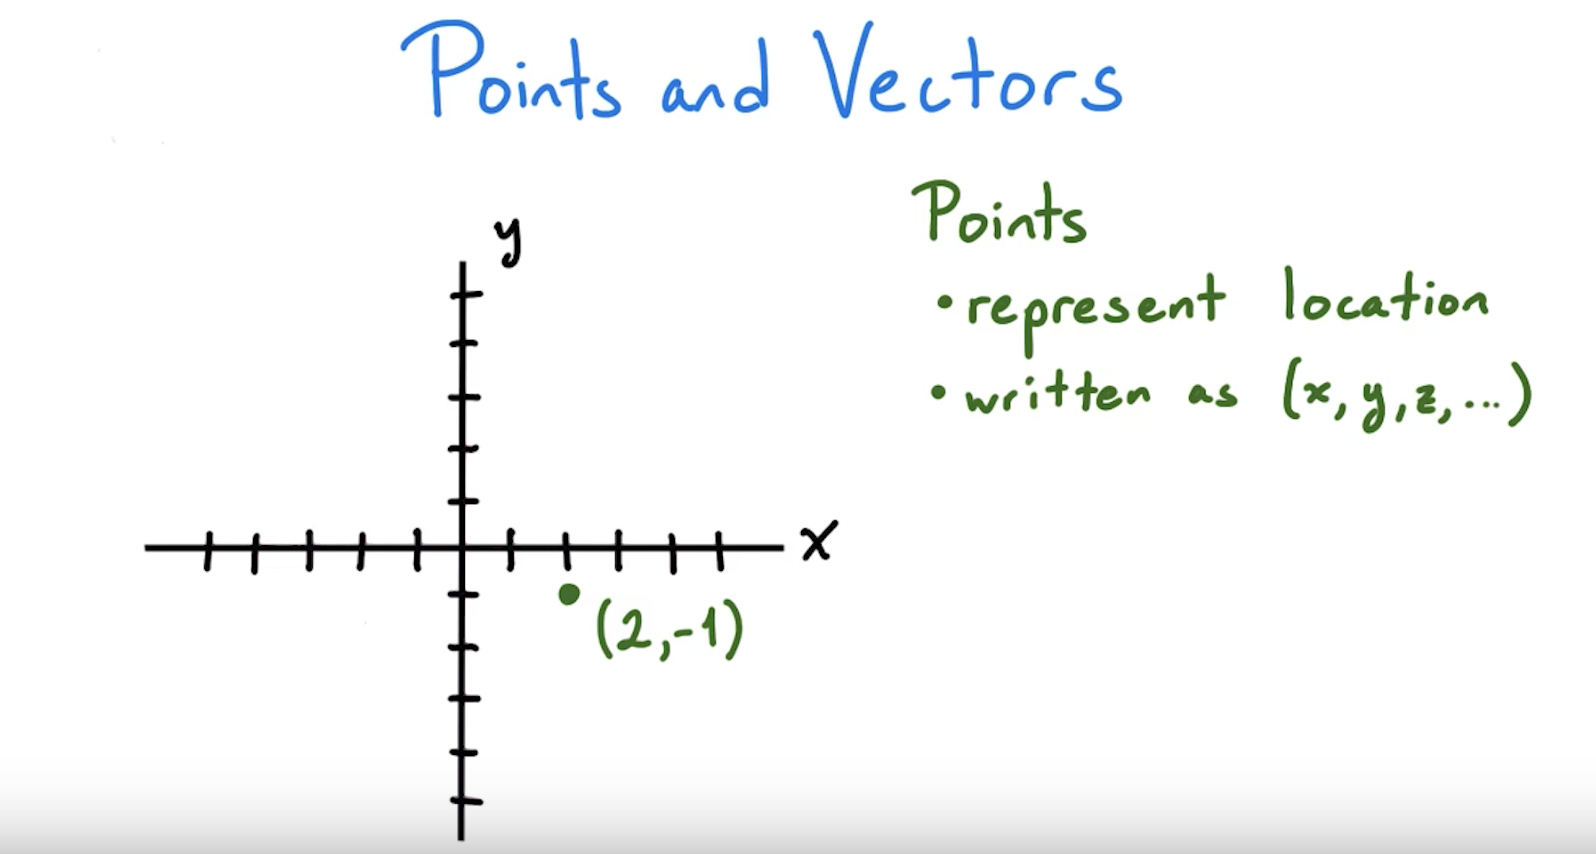 Points and Vectors
Points
• represent location
• written as (x, y, z, ...)
y
x
(2,-1)